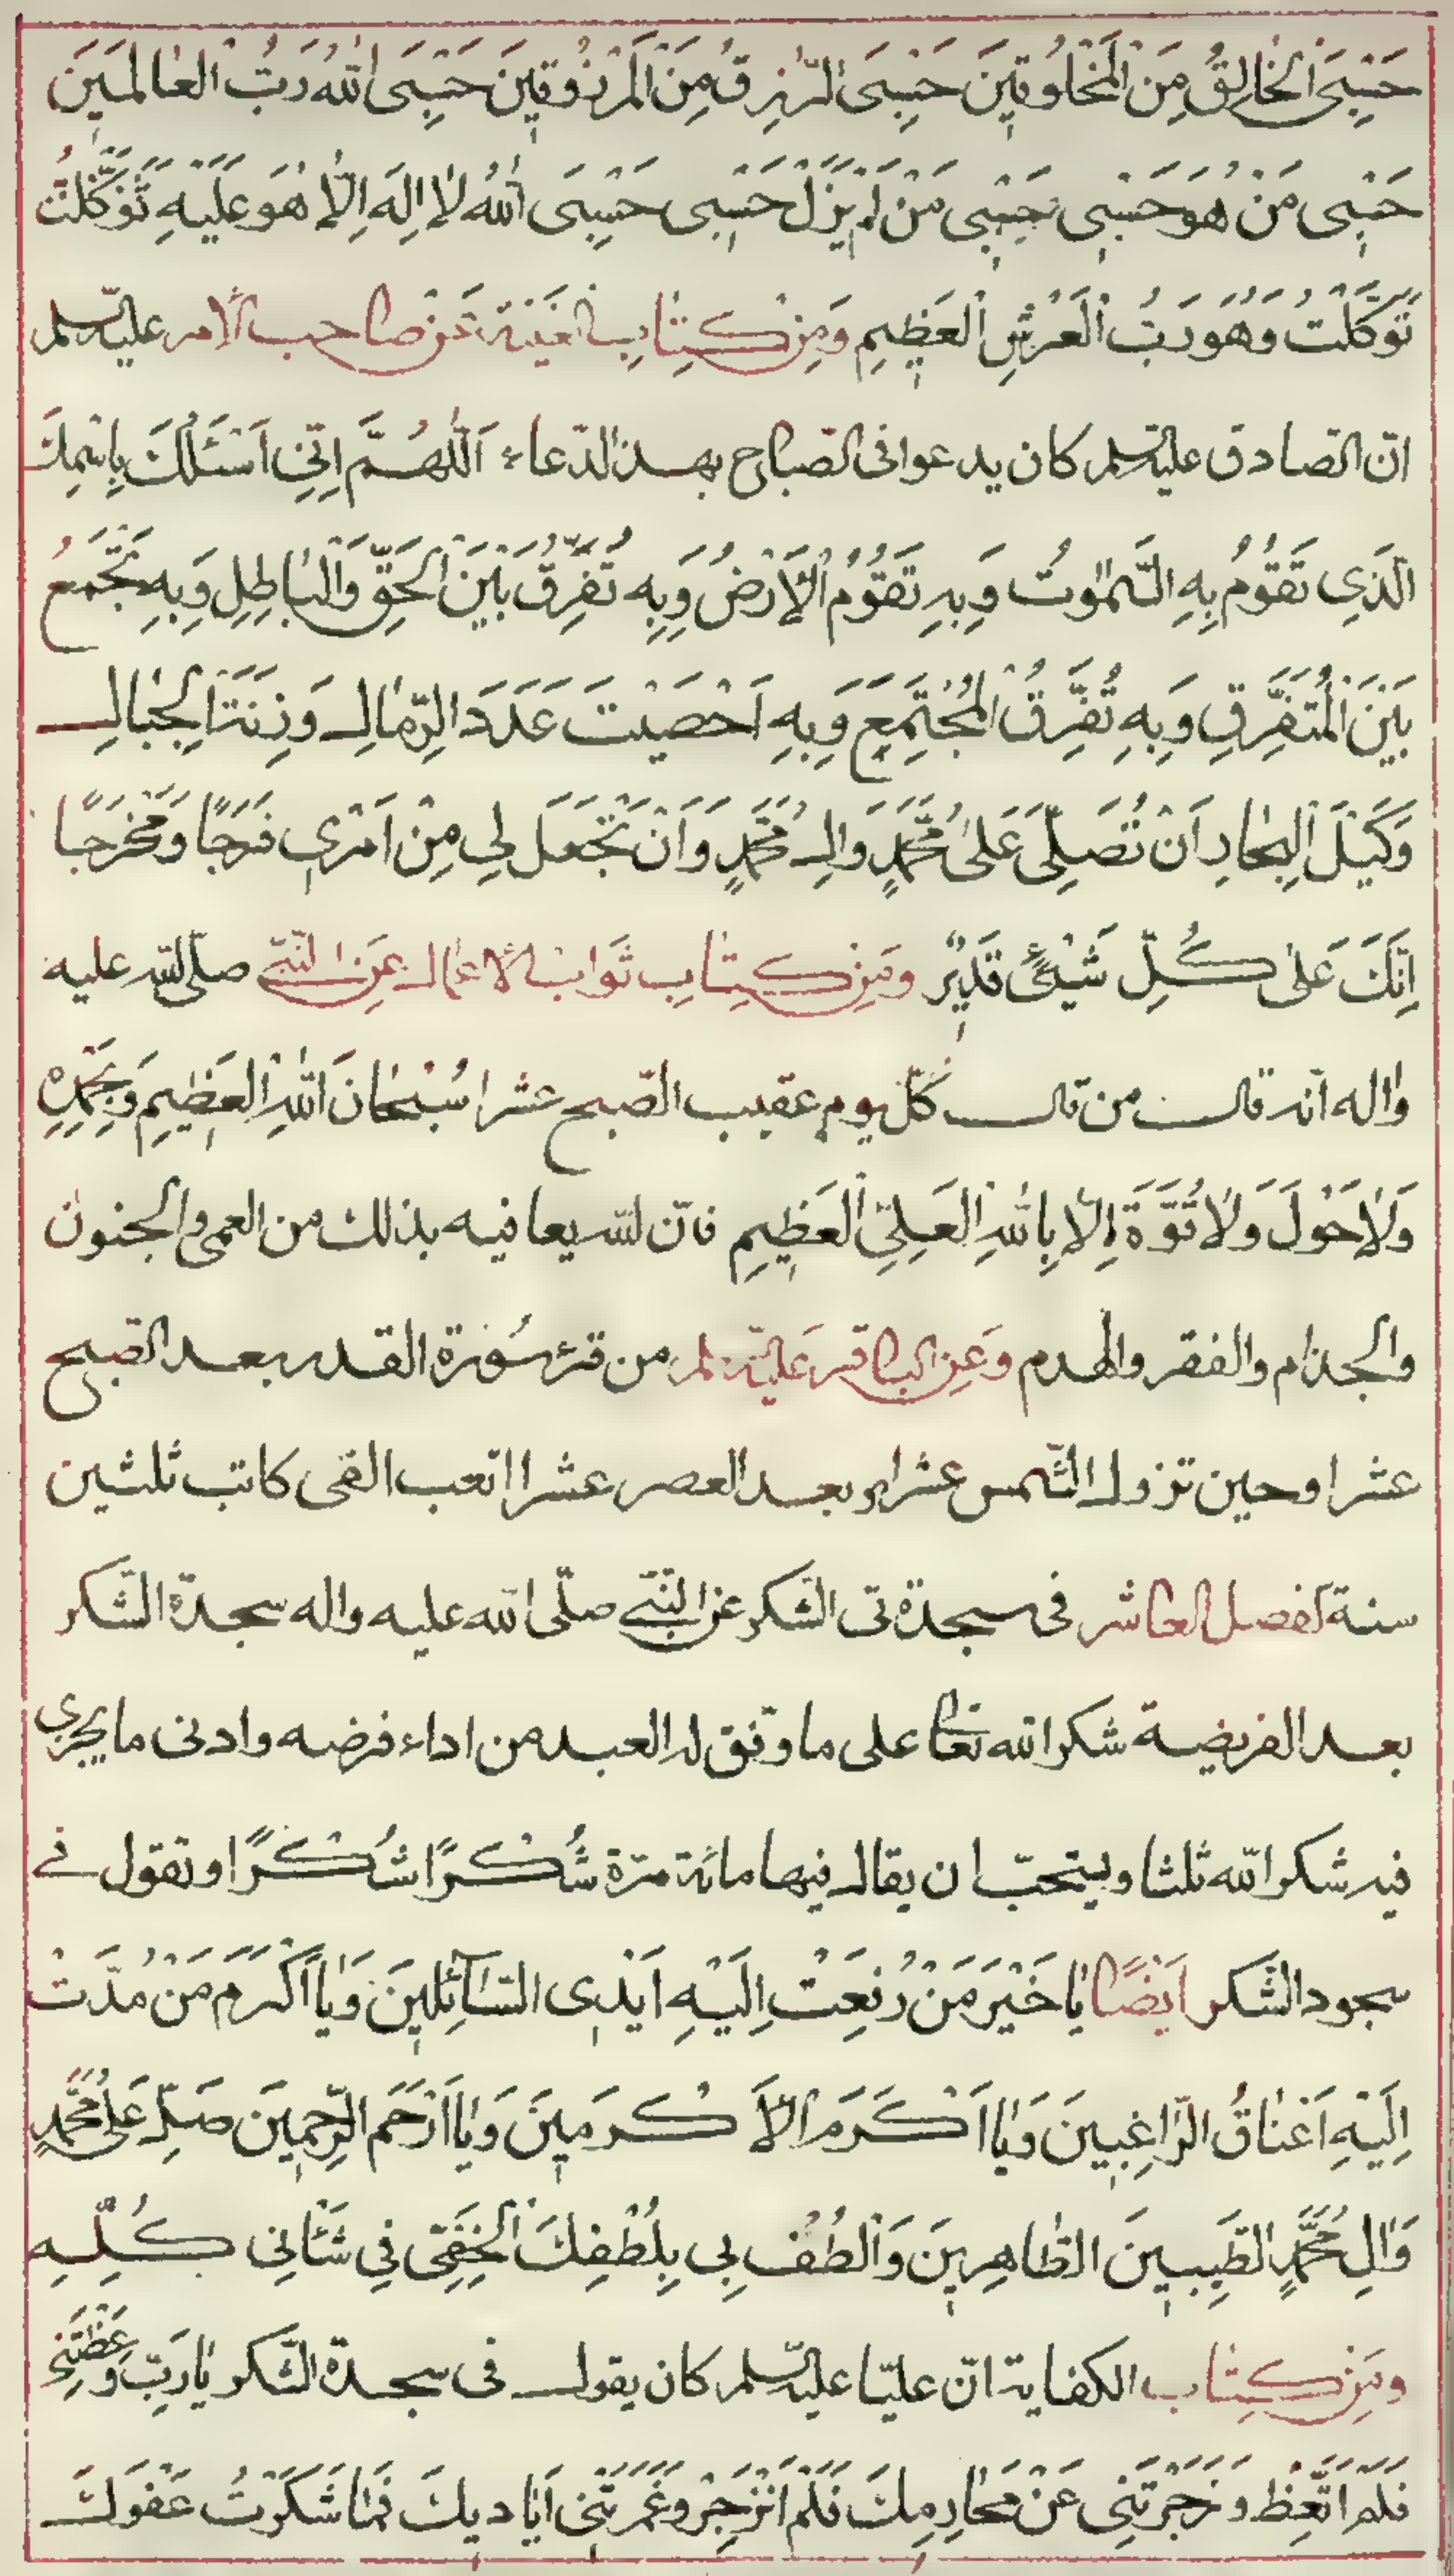 حَسْبِیَ الْخٰالِقُ مِنَ الْمَخْلُوقٖینَ حَسْبِیَ الرّٰازِقُ مِنَ الْمَرْزُوقٖینَ حَسْبِیَ اللّٰهُ رَبُّ الْعٰالَمٖینَ
حَسْبٖی مَنْ هُوَ حَسْبٖی حَسْبٖی مَنْ لَمْ یَزَلْ حَسْبٖی حَسْبِیَ اللّٰهُ لٰا اِلٰهَ اِلّٰا هُوَ عَلَیْهِ تَوَکَّلْتُ
تَوَکَّلْتُ وَهُوَ رَبُّ الْعَرْشِ الْعَظٖیمِ وَمِنْ کِتٰابِ الغیبة عَنْ صاحب الأمر علیه‌السلم
انّ الصادق علیه‌السلم کان یدعوا فی الصباح بهذا الدّعاء اَللّٰهُمَّ اِنّٖی اَسْئَلُكَ بِاسْمِكَ
الَّذٖی تَقُومُ بِهِ السَّمٰوٰتُ وَبِهِ تَقُومُ الْاَرْضُ وَبِهِ تُفَرِّقُ بَیْنَ الْحَقِّ وَالْبٰاطِلِ وَبِهِ تَجْمَعُ
بَیْنَ الْمُتَفَرِّقِ وَبِهِ تُفَرِّقُ الْمُجْتَمِعِ وَبِهِ اَحْصَیْتَ عَدَدَ الرِّمٰالِ وَزِنَةَ الْجِبٰالِ
وَکَیْلَ الْبِحٰارِ اَنْ تُصَلِّیَ عَلیٰ مُحَمَّدٍ وَاٰلِ مُحَمَّدٍ وَاَنْ تَجْعَلَ لٖی مِنْ اَمْرٖی فَرَجًا وَمَخْرَجًا
اِنَّكَ عَلیٰ کُلِّ شَیْئٍ قَدٖیرٌ ومِنْ کِتٰابِ ثَوٰاب الأعمال عَنِ النَّبیّ صلّی اللّه علیه
واٰله انّه قال من قال کلّ یوم عقیب الصّبح عشرا سُبْحٰانَ اللّٰهِ الْعَظٖیمِ وَبِحَمْدِهٖ
وَلٰا حَوْلَ وَلٰا قُوَّةَ اِلّٰا بِاللّٰهِ الْعَلِیِّ الْعَظٖیمِ فانّ اللّه یعافیه بذلك من العمی والجنون
والجذام والفقر والهدم وَعَنِ الباقر عَلیه‌السّلم من قرء سُورة القدر بعد الصّبح
عشرا وحین تزول الشّمس عشرا وبعد العصر عشرا اتعب الفی کاتب ثلثین
سنة الفصل العاشر فی سجدة تی الشّکر عن النّبیّ صلّی اللّه علیه واله سجدة الشّکر
بعد الفریضة شکرا للّه تعالی علی ما وفّق له العبد من اداء فرضه وادنی ما یجزی
فیه شکرا للّه ثلثا ویستحبّ ان یقال فیها مائة مرّة شُکْرًا شُکْرًا وتقول فی
سجود الشّکر اَیضًا یٰا خَیْرَ مَنْ رُفِعَتْ اِلَیْهِ اَیْدٖی السّٰآئِلٖینَ وَیٰا اَکْرَمَ مَنْ مُدَّتْ
اِلَیْهِ اَعْنٰاقُ الرّٰاغِبٖینَ وَیٰا اَکْرَمَ الْاَکْرَمٖینَ وَیٰا اَرْحَمَ الرّٰحِمٖینَ صَلِّ عَلیٰ مُحَمَّدٍ
وَاٰلِ مُحَمَّدٍ الطَّیِّبٖینَ الطّٰاهِرٖینَ وَالْطُفْ بٖی بِلُطْفِكَ الْخَفِیِّ فِی شَاْنٖی کُلِّهِ
ومِنْ کِتٰاب الکفایة انّ علیّا علیه‌السّلم کان یقول فی سجدة الشّکر یٰا رَبِّ وَعَظْتَنٖی
فَلَمْ اَتَّعِظْ وَزَجَرْتَنٖی عَنْ مَحٰارِمِكَ فَلَمْ اَنْزَجِرْ وَغَمَرَتْنٖی اَیٰادٖیكَ فَمٰا شَکَرْتُ عَفْوَكَ